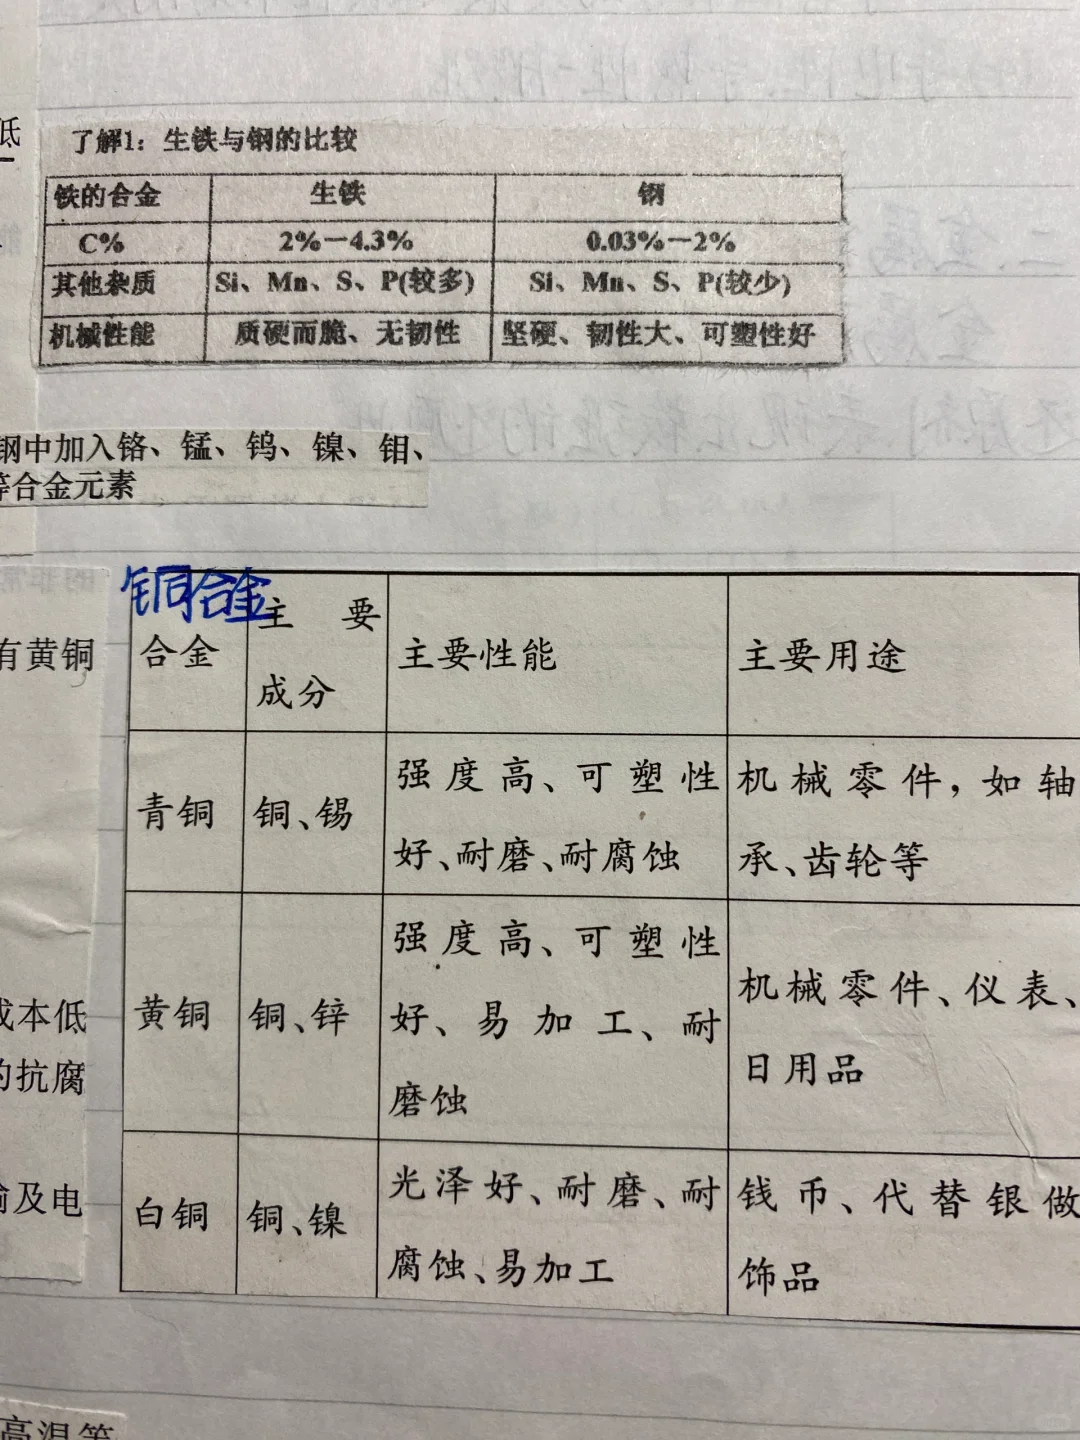 低
了解1：生铁与钢的比较
铁的合金 生铁 钢
C% 2%－4.3% 0.03%－2%
其他杂质 Si、Mn、S、P(较多) Si、Mn、S、P(较少)
机械性能 质硬而脆、无韧性 坚硬、韧性大、可塑性好
钢中加入铬、锰、钨、镍、钼、
等合金元素
铜合金
合金 主要 主要性能 主要用途
成分
有黄铜
青铜 铜、锡 强度高、可塑性 机械零件，如轴
好、耐磨、耐腐蚀 承、齿轮等
黄铜 铜、锌 强度高、可塑性 机械零件、仪表、
好、易加工、耐 日用品
磨蚀
成本低
的抗腐
输及电
白铜 铜、镍 光泽好、耐磨、耐 钱币、代替银做
腐蚀、易加工 饰品
高温等